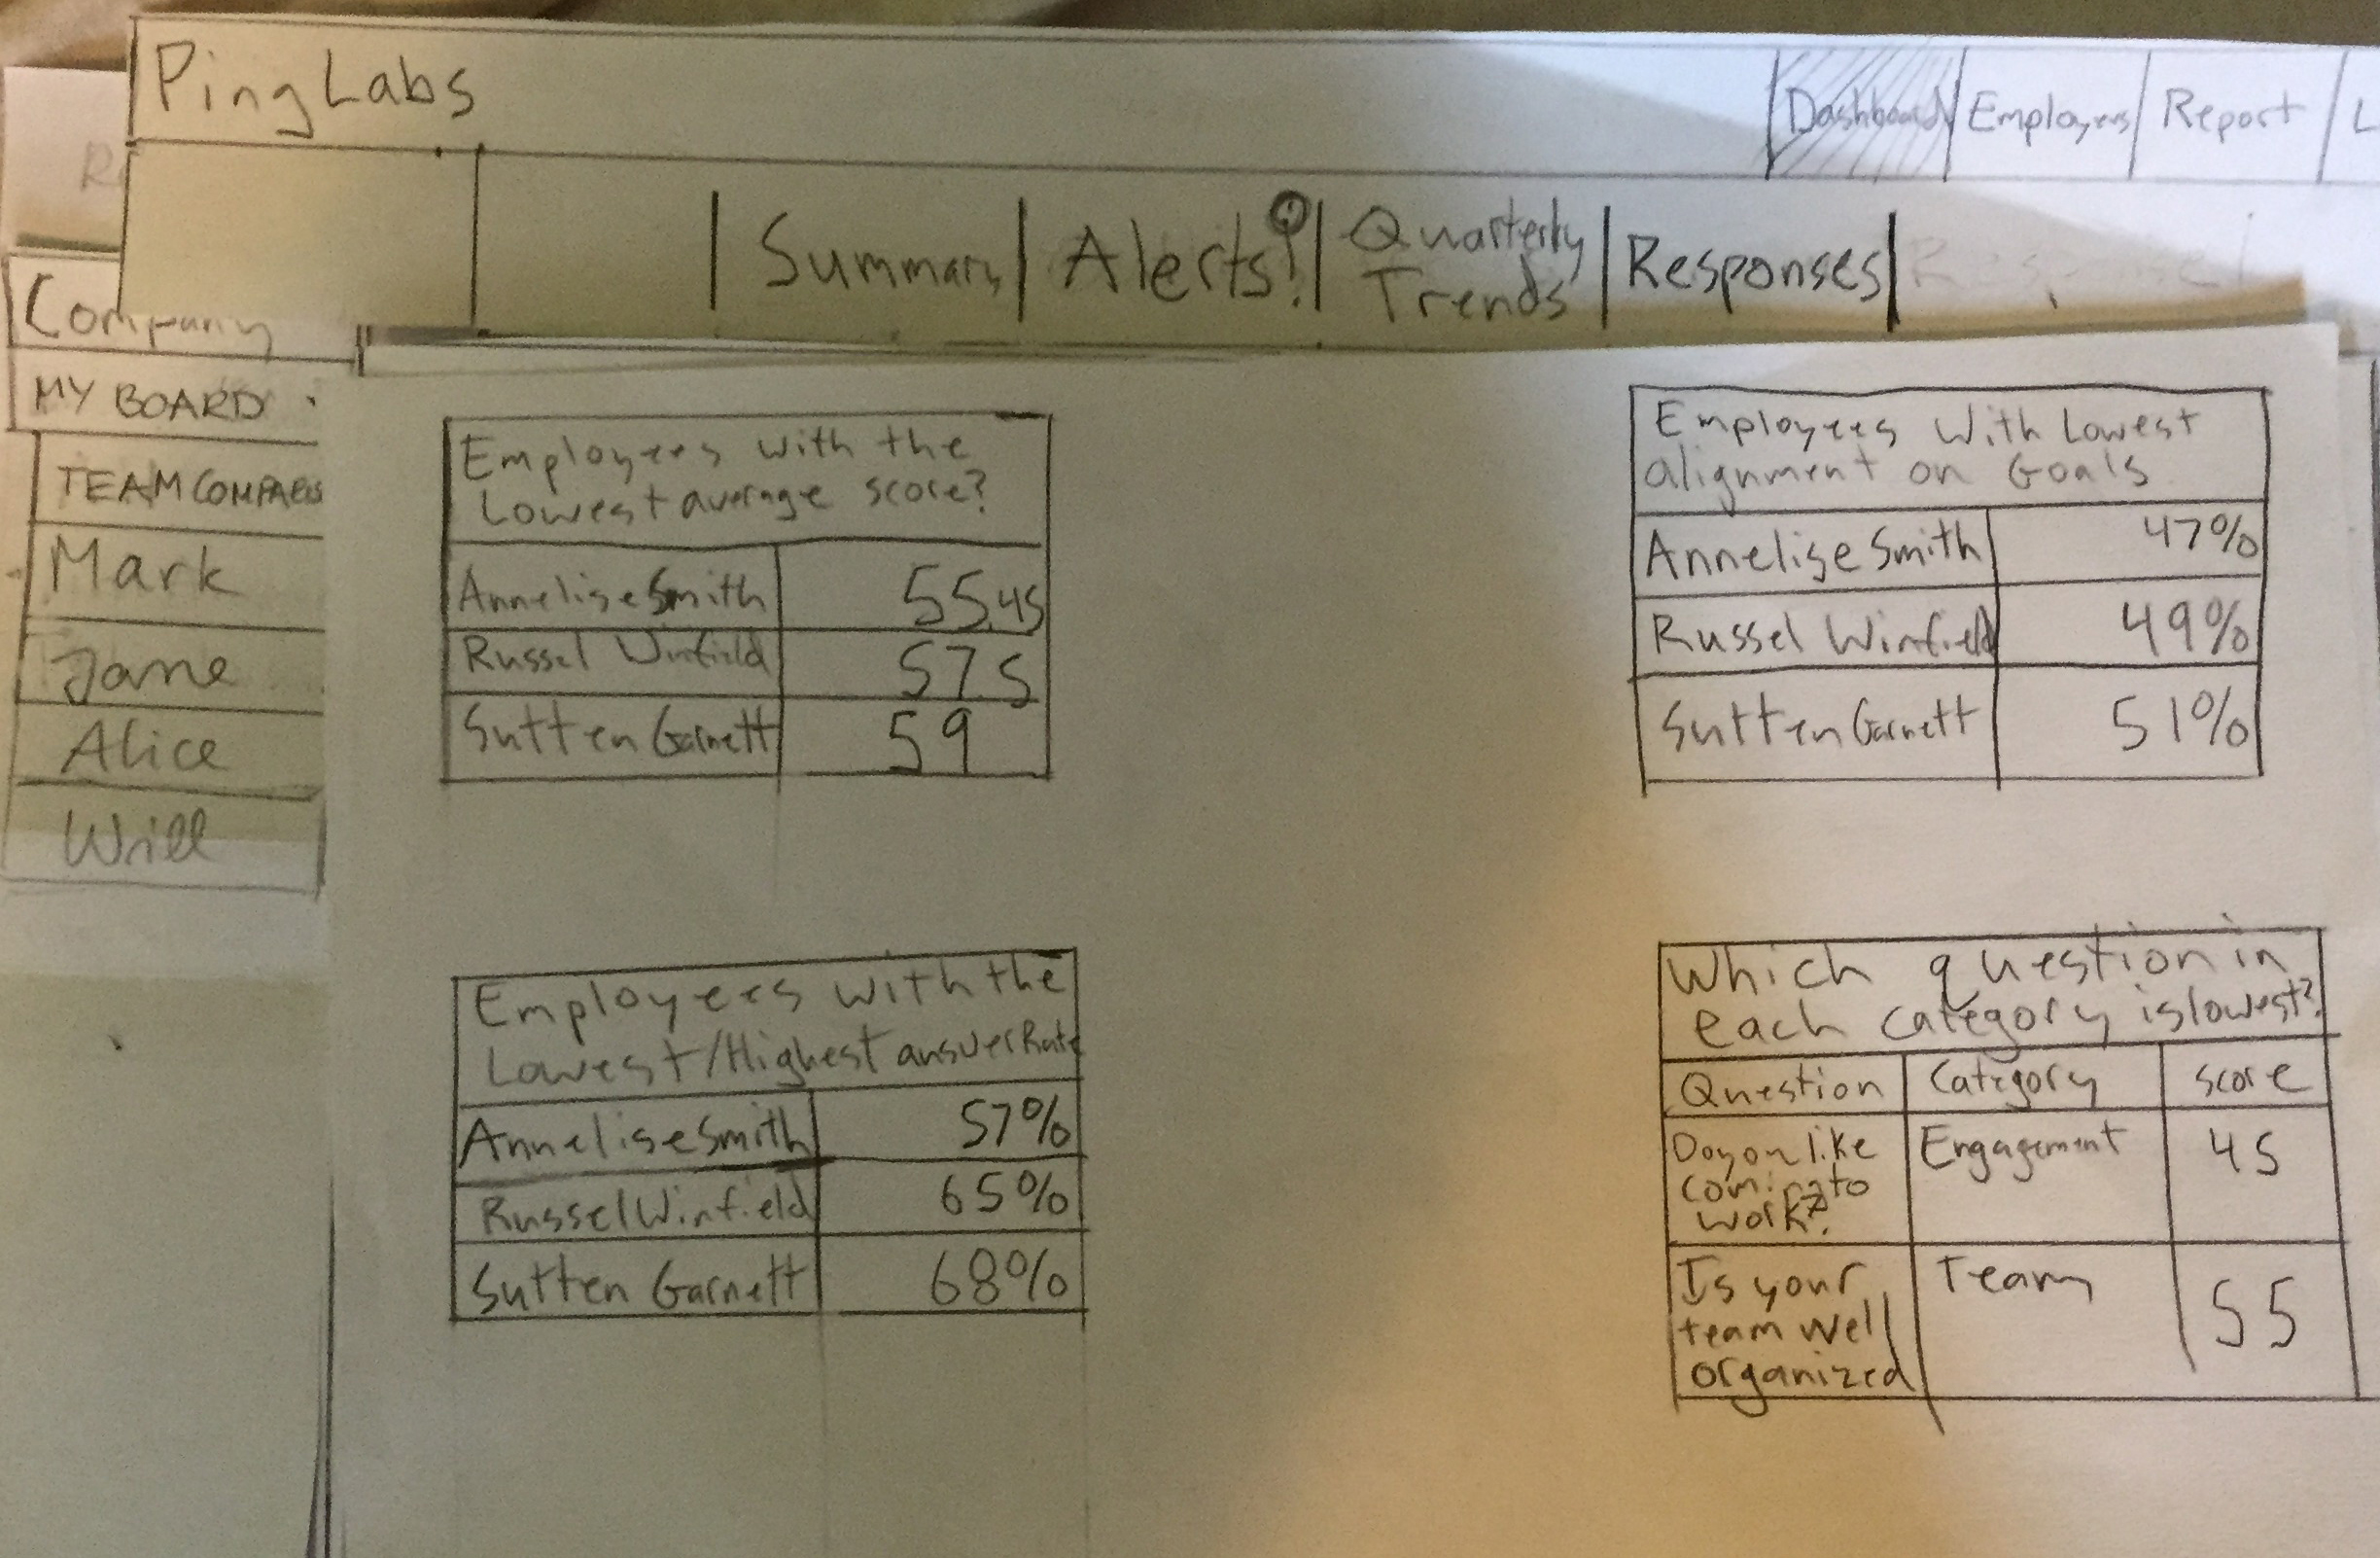 PingLabs
Dashboard Employees Report L
Summary Alerts! Quarterly Trends Responses
Company
MY BOARD
TEAM COMPARIS
Mark
Jane
Alice
Will
Employees with the
Lowest average score?
Annelise Smith 55.45
Russel Winfield 57.5
Sutten Garnett 59
Employees With Lowest
alignment on Goals
Annelise Smith 47%
Russel Winfield 49%
Sutten Garnett 51%
Employees with the
Lowest/Highest answer Rate
Annelise Smith 57%
Russel Winfield 65%
Sutten Garnett 68%
Which question in
each category is lowest?
Question Category score
Do you like Engagement 45
coming to
work?
Is your Team 55
team well
organized